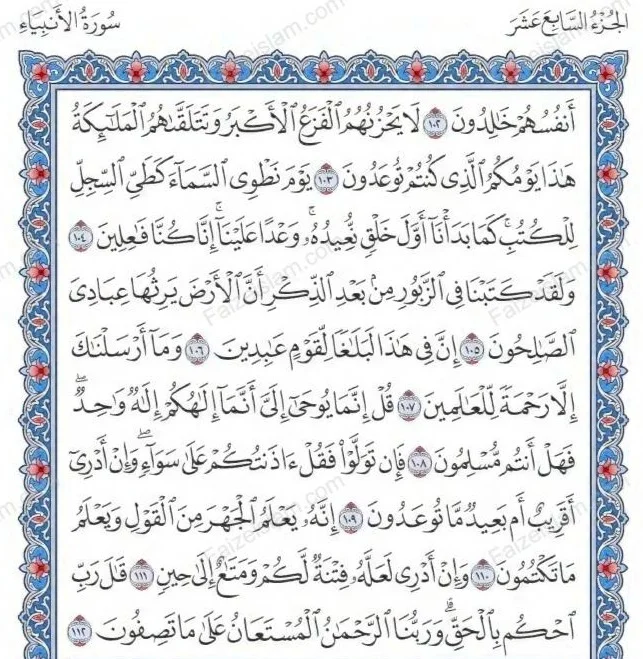 الجُزْءُ السَّابِعَ عَشَرَ
سُورَةُ الأَنبِيَاءِ
أَنفُسُهُمْ خَٰلِدُونَ ١٠٢ لَا يَحْزُنُهُمُ ٱلْفَزَعُ ٱلْأَكْبَرُ وَتَتَلَقَّىٰهُمُ ٱلْمَلَٰٓئِكَةُ
هَٰذَا يَوْمُكُمُ ٱلَّذِى كُنتُمْ تُوعَدُونَ ١٠٣ يَوْمَ نَطْوِى ٱلسَّمَآءَ كَطَىِّ ٱلسِّجِلِّ
لِلْكُتُبِ ۚ كَمَا بَدَأْنَآ أَوَّلَ خَلْقٍ نُّعِيدُهُۥ ۚ وَعْدًا عَلَيْنَآ ۚ إِنَّا كُنَّا فَٰعِلِينَ ١٠٤
وَلَقَدْ كَتَبْنَا فِى ٱلزَّبُورِ مِنۢ بَعْدِ ٱلذِّكْرِ أَنَّ ٱلْأَرْضَ يَرِثُهَا عِبَادِىَ
ٱلصَّٰلِحُونَ ١٠٥ إِنَّ فِى هَٰذَا لَبَلَٰغًا لِّقَوْمٍ عَٰبِدِينَ ١٠٦ وَمَآ أَرْسَلْنَٰكَ
إِلَّا رَحْمَةً لِّلْعَٰلَمِينَ ١٠٧ قُلْ إِنَّمَا يُوحَىٰٓ إِلَىَّ أَنَّمَآ إِلَٰهُكُمْ إِلَٰهٌ وَٰحِدٌ ۖ
فَهَلْ أَنتُم مُّسْلِمُونَ ١٠٨ فَإِن تَوَلَّوْا۟ فَقُلْ ءَاذَنتُكُمْ عَلَىٰ سَوَآءٍ ۖ وَإِنْ أَدْرِىٓ
أَقَرِيبٌ أَم بَعِيدٌ مَّا تُوعَدُونَ ١٠٩ إِنَّهُۥ يَعْلَمُ ٱلْجَهْرَ مِنَ ٱلْقَوْلِ وَيَعْلَمُ
مَا تَكْتُمُونَ ١١٠ وَإِنْ أَدْرِى لَعَلَّهُۥ فِتْنَةٌ لَّكُمْ وَمَتَٰعٌ إِلَىٰ حِينٍ ١١١ قَٰلَ رَبِّ
ٱحْكُم بِٱلْحَقِّ ۗ وَرَبُّنَا ٱلرَّحْمَٰنُ ٱلْمُسْتَعَانُ عَلَىٰ مَا تَصِفُونَ ١١٢
Faizeislam.com